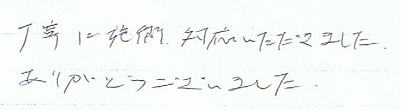 丁寧に施術、対応いただきました。
ありがとうございました。